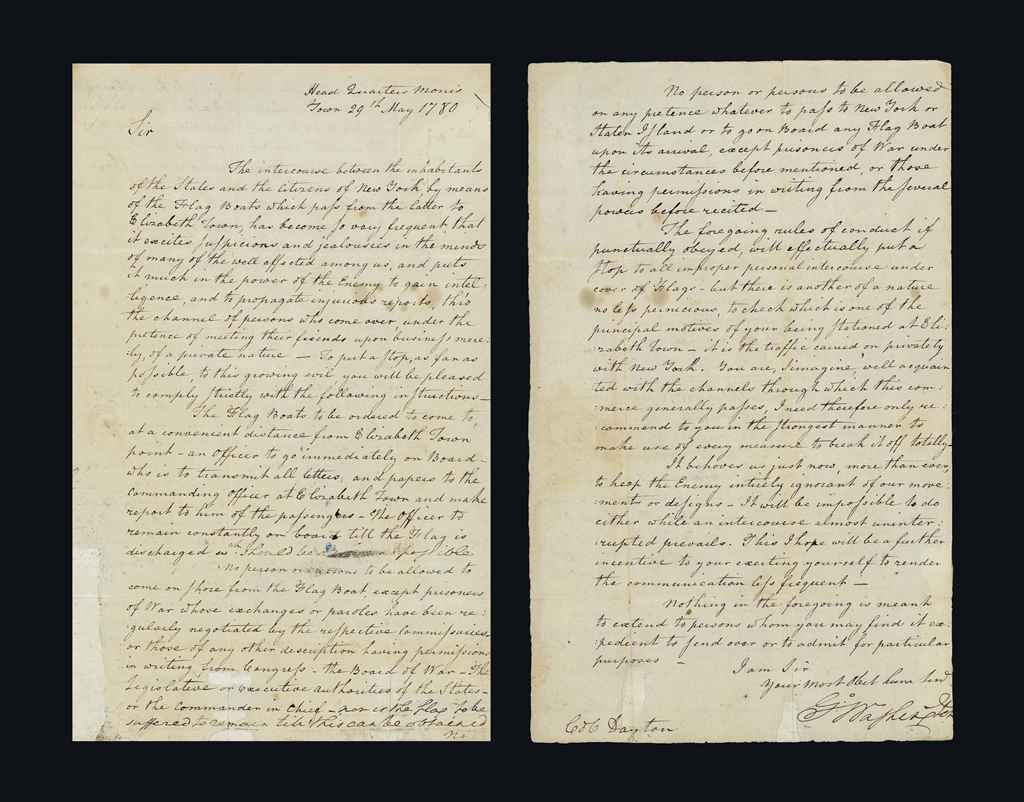 Head Quarters Morris
Town 29th May 1780
Sir
The intercourse between the inhabitants
of the States and the Citizens of New York, by means
of the Flag Boats which pass from the latter to
Elizabeth Town, has become so very frequent, that
it excites suspicions and jealousies in the minds
of many of the well affected among us, and puts
it much in the power of the Enemy to gain intel
ligence, and to propagate injurious reports, thro
the channel of persons who come over, under the
pretence of meeting their friends upon business mere
ly, of a private nature — To put a stop, as far as
possible, to this growing evil you will be pleased
to comply strictly with the following instructions —
The Flag Boats to be ordered to come to,
at a convenient distance from Elizabeth Town
point – an Officer to go immediately on Board –
who is to transmit all letters, and papers to the
commanding Officer at Elizabeth Town and make
report to him of the passengers – The Officer to
remain constantly on board till the Flag is
discharged wch should be as possible
No person or persons to be allowed to
come on shore from the Flag Boat, except prisoners
of War whose exchanges or paroles have been re:
gularly negotiated by the respective Commissaries –
or those of any other description having permissions
in writing from Congress – the Board of War – The
Legislative or executive authorities of the States –
or the Commander in Chief – nor is the flag to be
suffered to remain till this can be obtained
No
No person or persons to be allowed
on any pretence whatever to pass to New York or
Staten Island or to go on Board any Flag Boat
upon its arrival, except prisoners of War under
the circumstances before mentioned, or those
having permissions in writing from the several
powers before recited —
The foregoing rules of conduct if
punctually obeyed, will effectually put a
stop to all improper personal intercourse under
cover of Flags – but there is another of a nature
no less pernicious, to check which is one of the
principal motives of your being stationed at Eli:
zabeth Town – it is the traffic carried on privately
with New York. You are, I imagine, well acquain
ted with the channels through which this com:
merce generally passes, I need therefore only re:
commend to you in the strongest manner to
make use of every measure to break it off totally –
It behoves us just now, more than ever,
to keep the Enemy intirely ignorant of our move:
ments or designs – It will be impossible to do
either while an intercourse almost uninter:
rupted prevails. This I hope will be a further
incentive to your exerting yourself to render
the communication less frequent —
Nothing in the foregoing is meant
to extend to persons whom you may find it ex:
pedient to send over or to admit for particular
purposes —
I am Sir
Your most Obet hum Srvt
Go Washington
Col Dayton